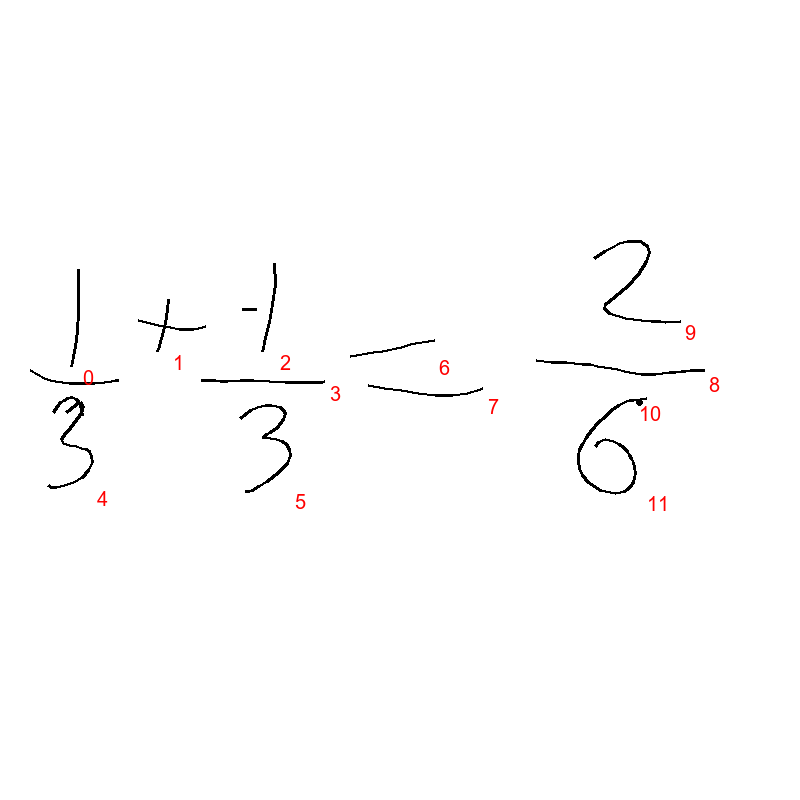 1/3 + -1/3 = 2/6
0 1 2 3 4 5 6 7 8 9 10 11